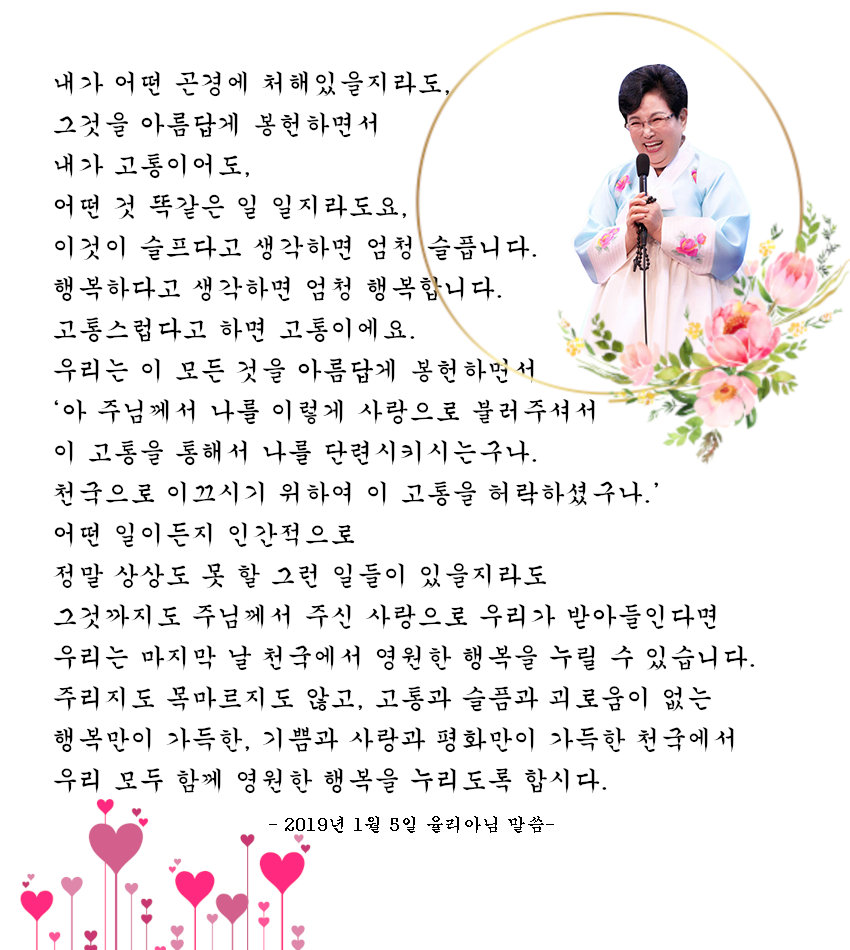 내가 어떤 곤경에 처해있을지라도,
그것을 아름답게 봉헌하면서
내가 고통이어도,
어떤 것 똑같은 일 일지라도요,
이것이 슬프다고 생각하면 엄청 슬픕니다.
행복하다고 생각하면 엄청 행복합니다.
고통스럽다고 하면 고통이에요.
우리는 이 모든 것을 아름답게 봉헌하면서
‘아 주님께서 나를 이렇게 사랑으로 불러주셔서
이 고통을 통해서 나를 단련시키시는구나.
천국으로 이끄시기 위하여 이 고통을 허락하셨구나.’
어떤 일이든지 인간적으로
정말 상상도 못 할 그런 일들이 있을지라도
그것까지도 주님께서 주신 사랑으로 우리가 받아들인다면
우리는 마지막 날 천국에서 영원한 행복을 누릴 수 있습니다.
주리지도 목마르지도 않고, 고통과 슬픔과 괴로움이 없는
행복만이 가득한, 기쁨과 사랑과 평화만이 가득한 천국에서
우리 모두 함께 영원한 행복을 누리도록 합시다.
- 2019년 1월 5일 율리아님 말씀-